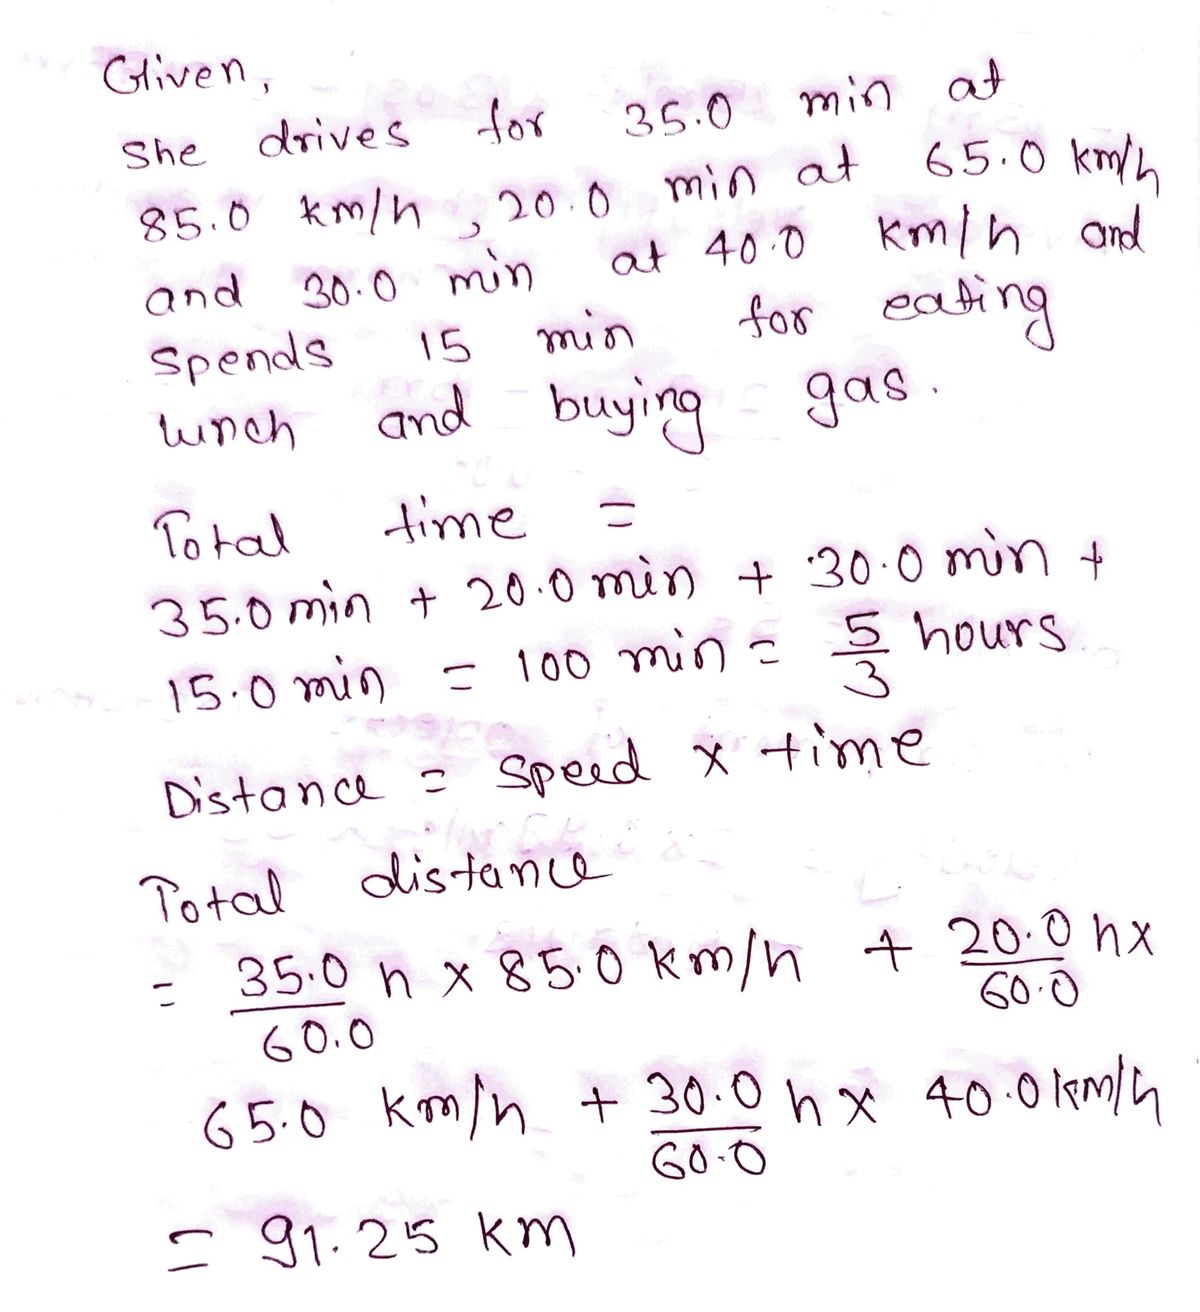 Given,
She drives for 35.0 min at
85.0 km/h, 20.0 min at 65.0 km/h
and 30.0 min at 40.0 km/h and
spends 15 min for eating
lunch and buying gas.
Total time =
35.0 min + 20.0 min + 30.0 min +
15.0 min = 100 min = 5/3 hours
Distance = speed x time
Total distance
= 35.0/60.0 h x 85.0 km/h + 20.0/60.0 h x
65.0 km/h + 30.0/60.0 h x 40.0 km/h
= 91.25 km